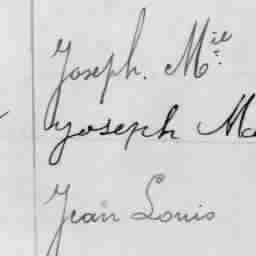 Joseph. M.el
Joseph Ma
Jean Louis